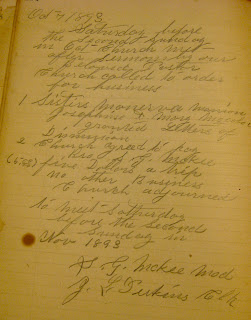 Oct 7 1893
Saturday before
the Second Sunday
in Oct Church met
after Sermon by our
beloved Pastor
Church called to order
for business
1 Sisters Manerva
Josephine + More
granted Letters of
Dismission
2 Church agreed to pay
Bro J. G. Mckee
(5.00) five Dollars a trip
no other Business
Church adjourned
to meet Satturday
before the Second
Sunday in
Nov 1893
J. G. Mckee Mod
J. L. Perkins Clk